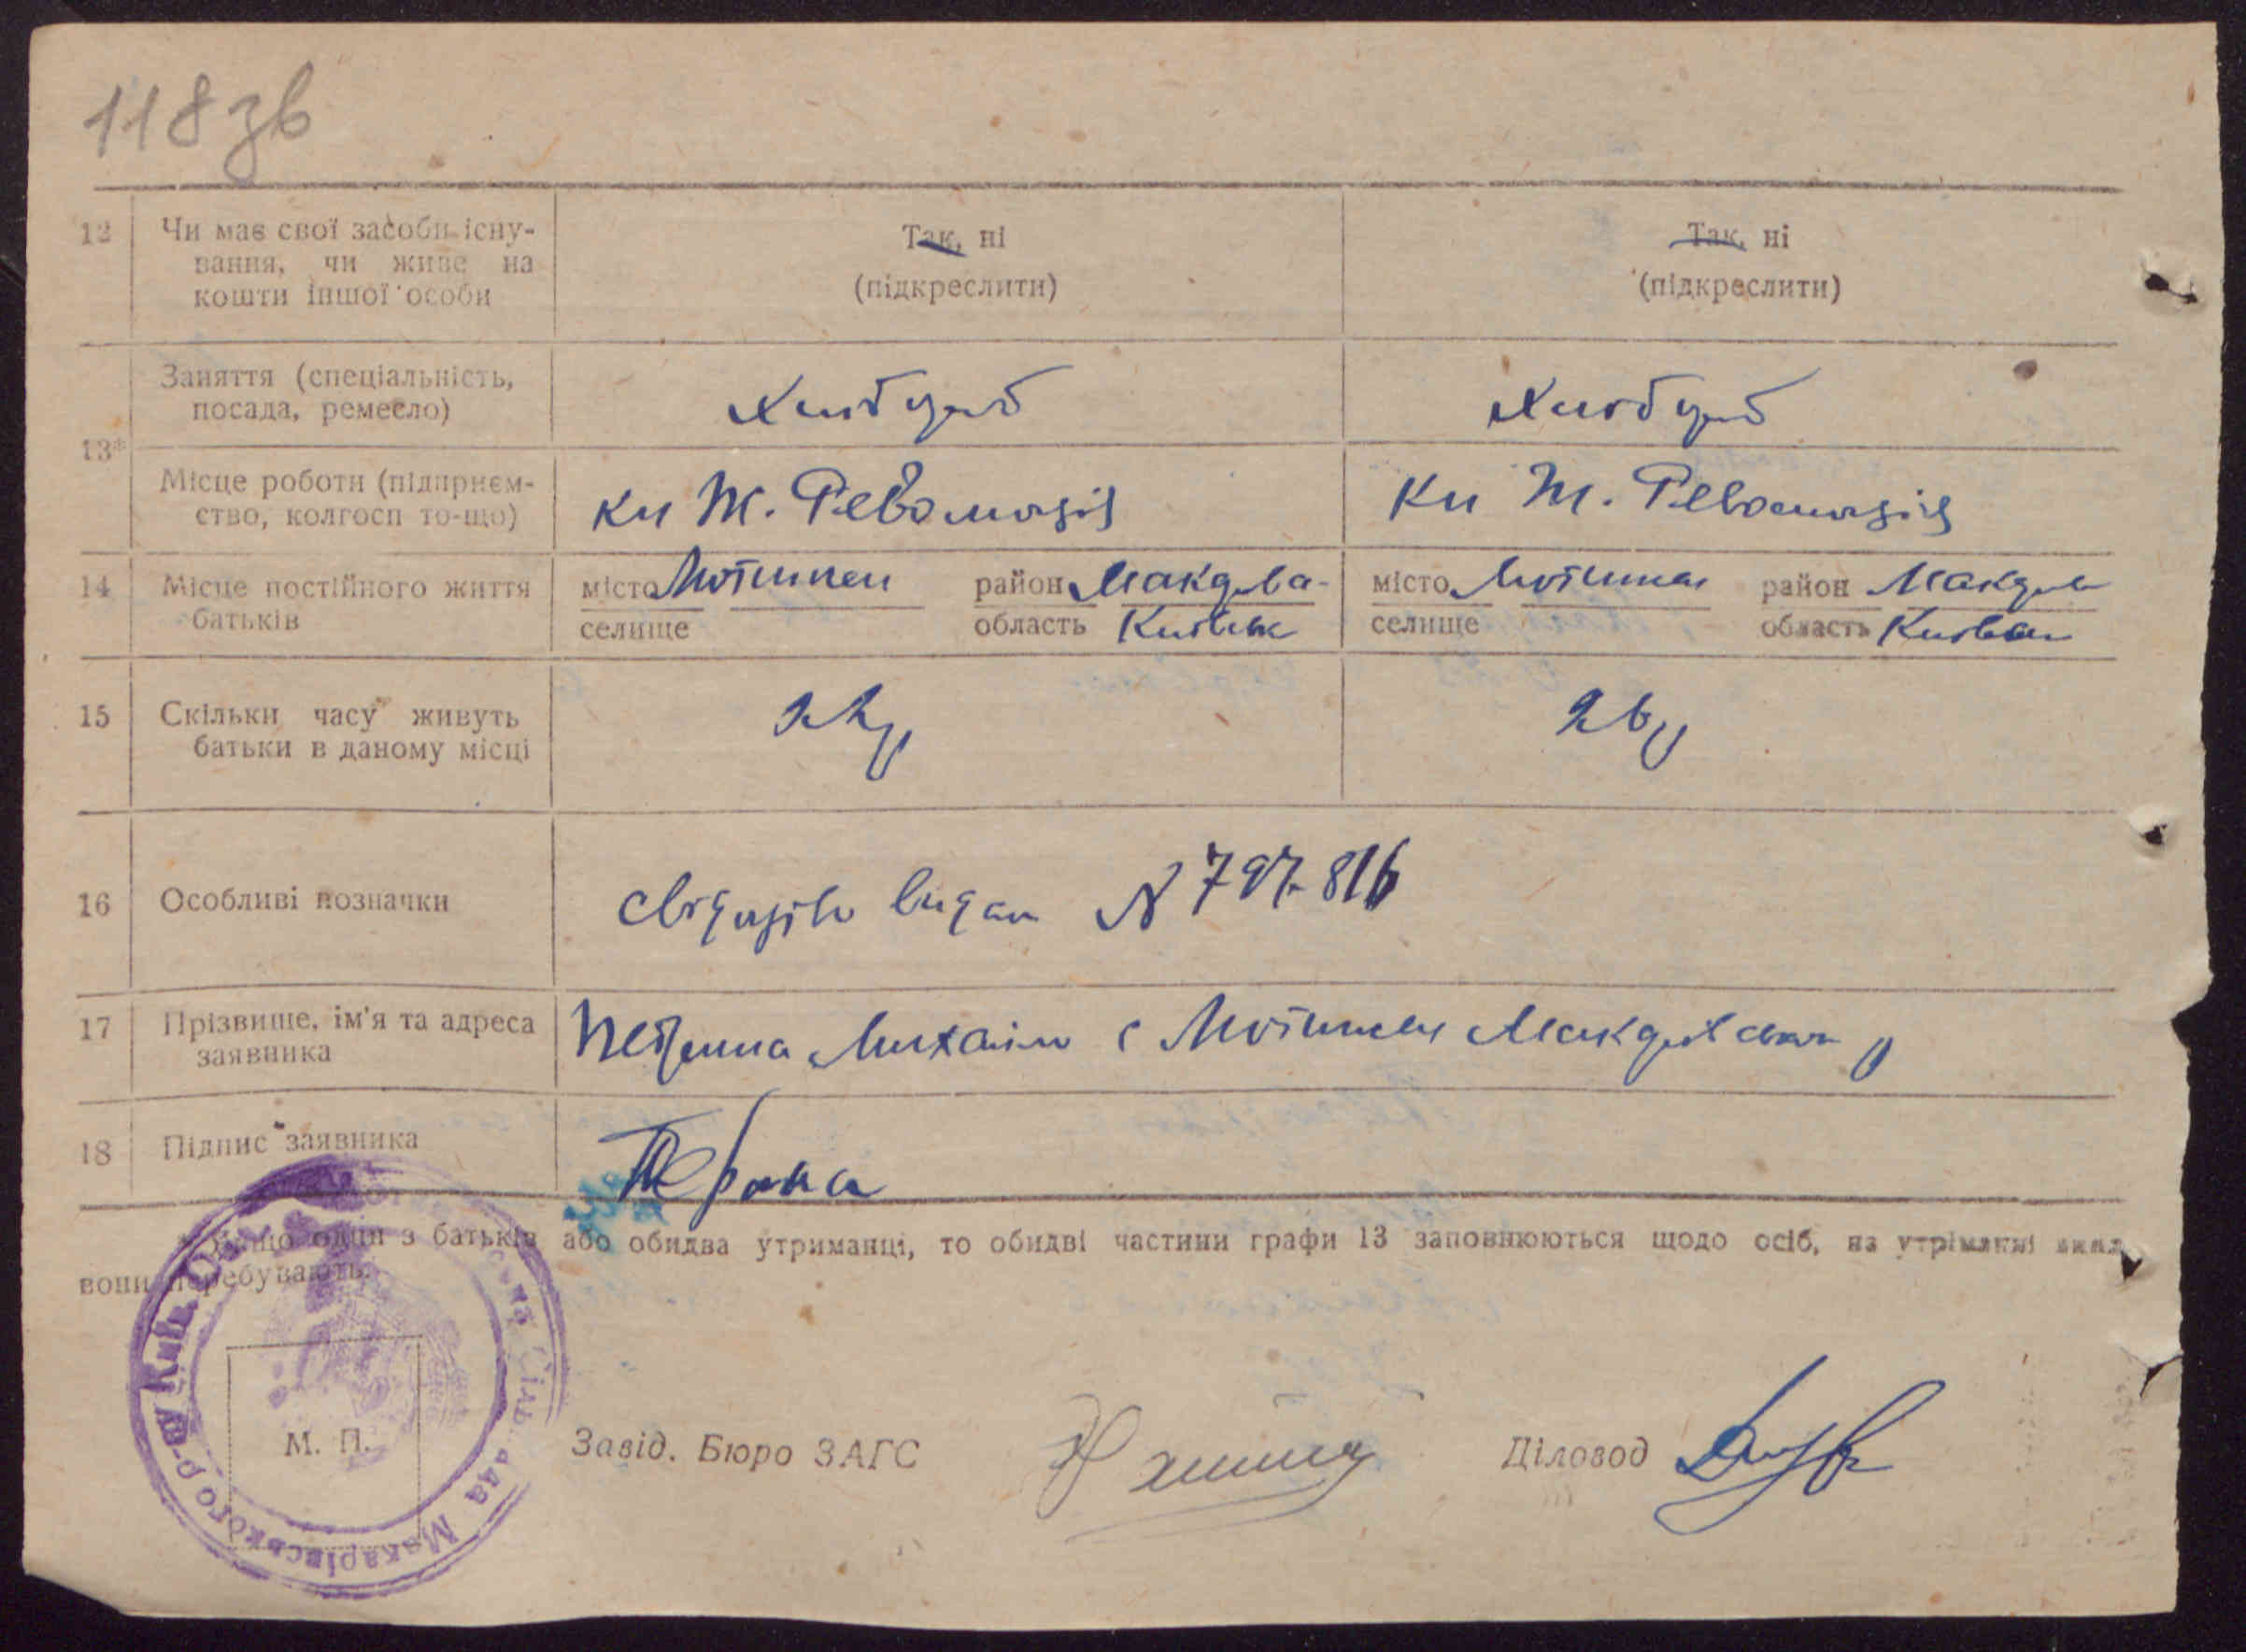 118зв
12 Чи має свої засоби існу- Так, ні Так, ні
вання, чи живе на (підкреслити) (підкреслити)
кошти іншої особи
Заняття (спеціальність, Хлібороб Хлібороб
посада, ремесло)
13*
Місце роботи (підприєм- Ж. Революція Ж. Революція
ство, колгосп то-що)
14 Місце постійного життя місто Мотижин район Макарів місто Мотижин район Макарів
батьків селище область Київськ селище область Київськ
15 Скільки часу живуть
батьки в даному місці
16 Особливі позначки видано N 797816
17 Прізвище, ім'я та адреса Михайло с Мотижин Макарівськ р
заявника
18 Підпис заявника
* Якщо один з батьків або обидва утриманці, то обидві частини графи 13 заповнюються щодо осіб, на утріманні яких
вони перебувають.
М. П. Завід. Бюро ЗАГС Діловод
Макарівського р-ну Київ.